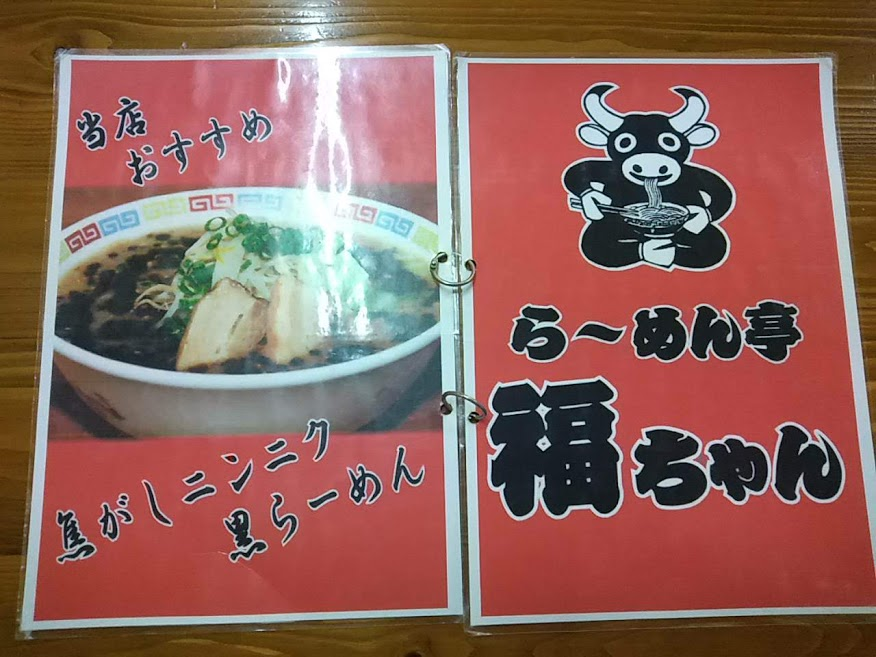 当店
おすすめ
焦がしニンニク
黒らーめん
ら〜めん亭
福ちゃん